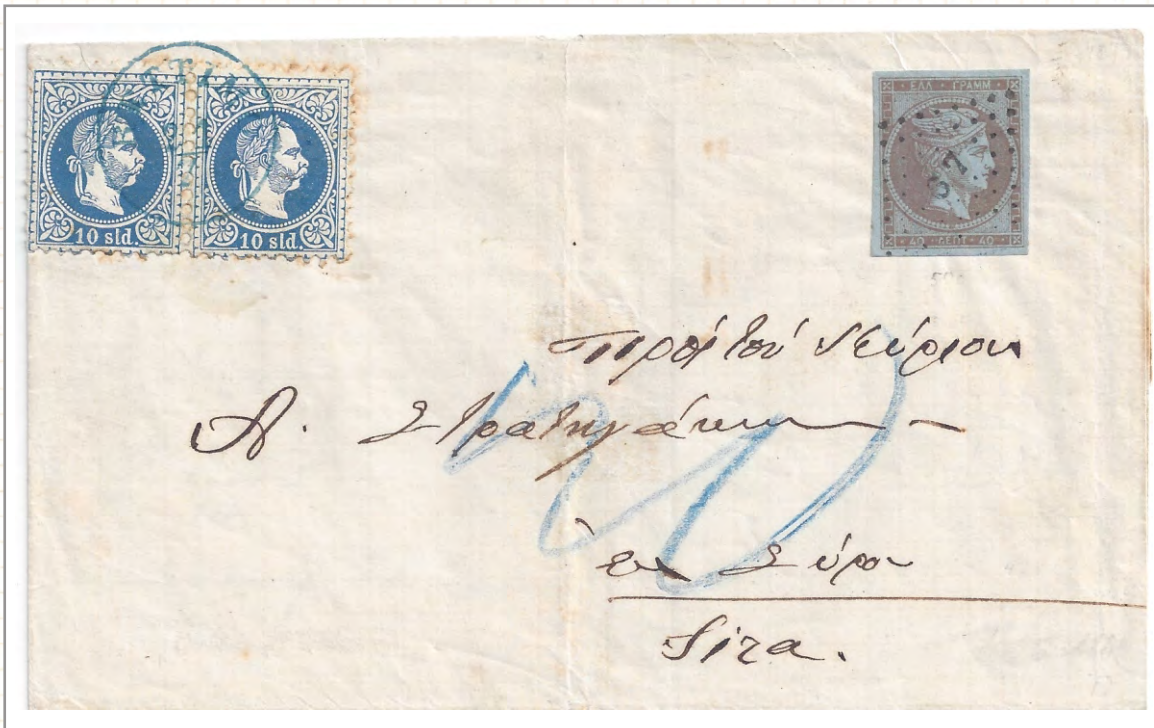 10 sld. 10 sld.
ΕΛΛ ΓΡΑΜΜ
40 ΛΕΠΤ 40
Πρὸς τὸν Κύριον
Α. Στρατηγάκην
εἰς Σύρα
Sira.